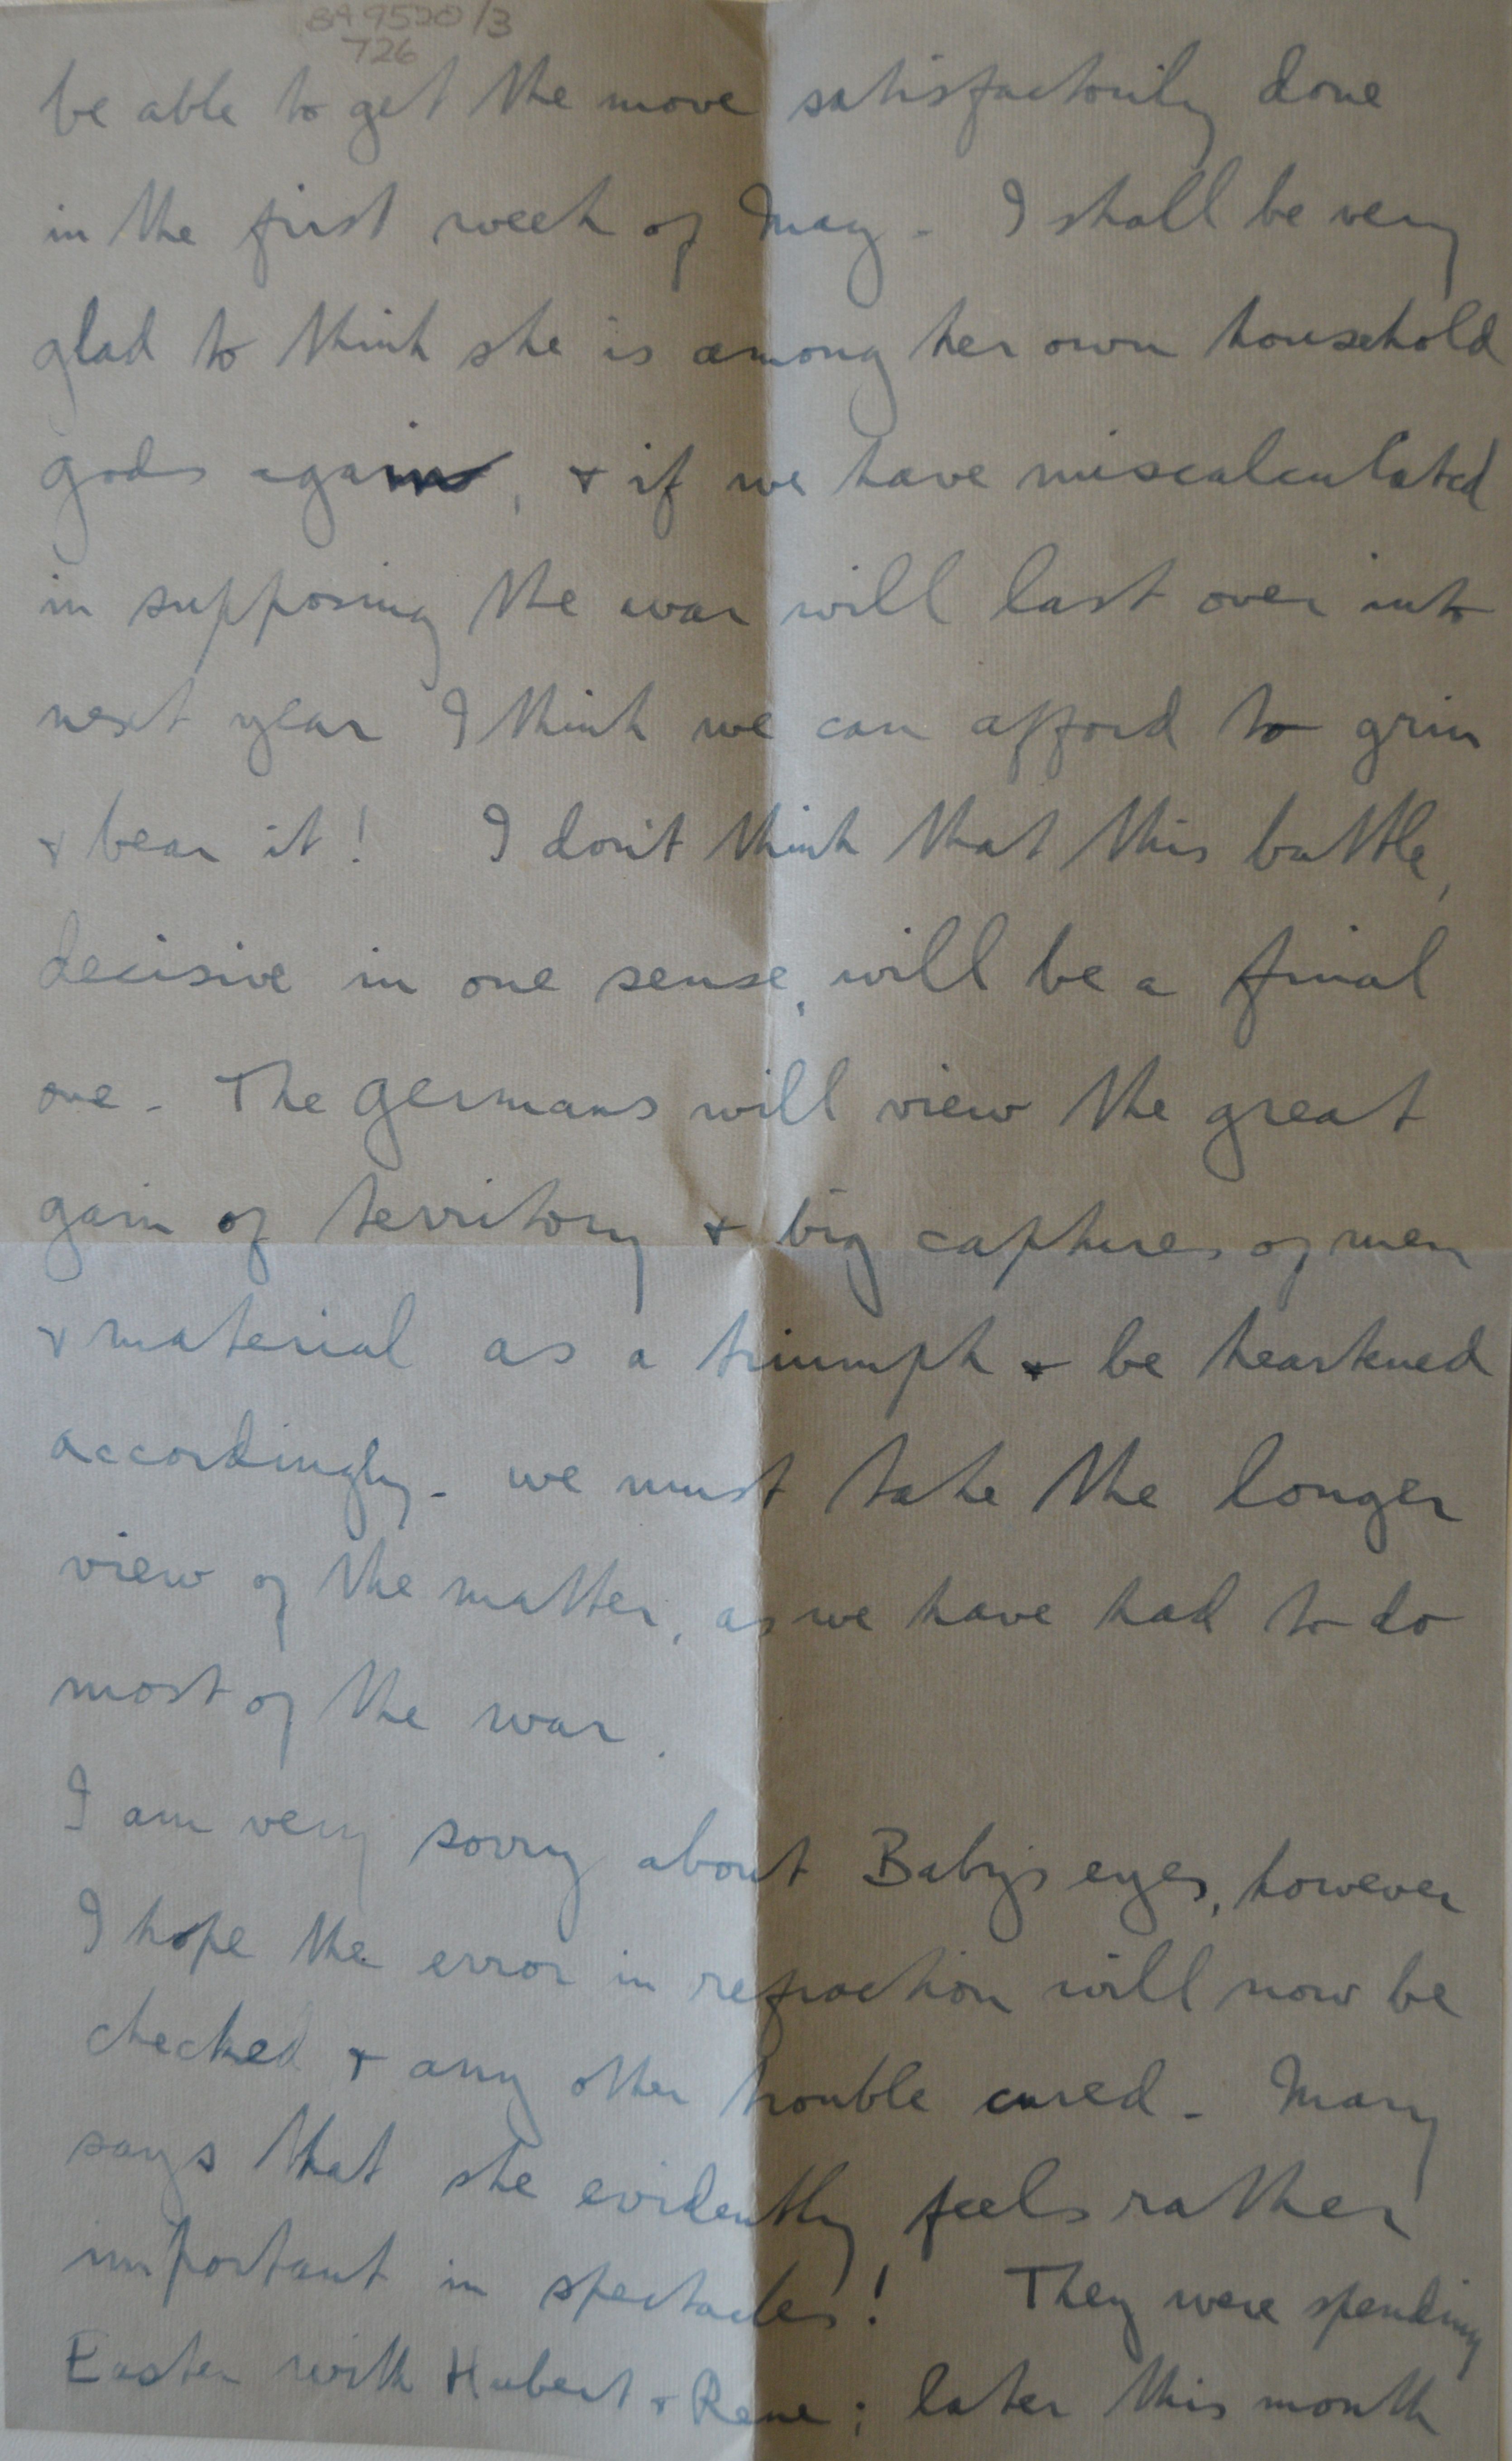 BA 9520/3
726
be able to get the move satisfactorily done
in the first week of May - I shall be very
glad to think she is among her own household
gods again, & if we have miscalculated
in supposing the war will last over into
next year I think we can afford to grin
& bear it! I don't think that this battle,
decisive in one sense, will be a final
one - The Germans will view the great
gain of territory & big captures of men
& material as a triumph & be heartened
accordingly - we must take the longer
view of the matter, as we have had to do
most of the war.
I am very sorry about Baby's eyes, however
I hope the error in refraction will now be
checked & any other trouble cured - Mary
says that she evidently feels rather
important in spectacles! They were spending
Easter with Hubert & Rene; later this month